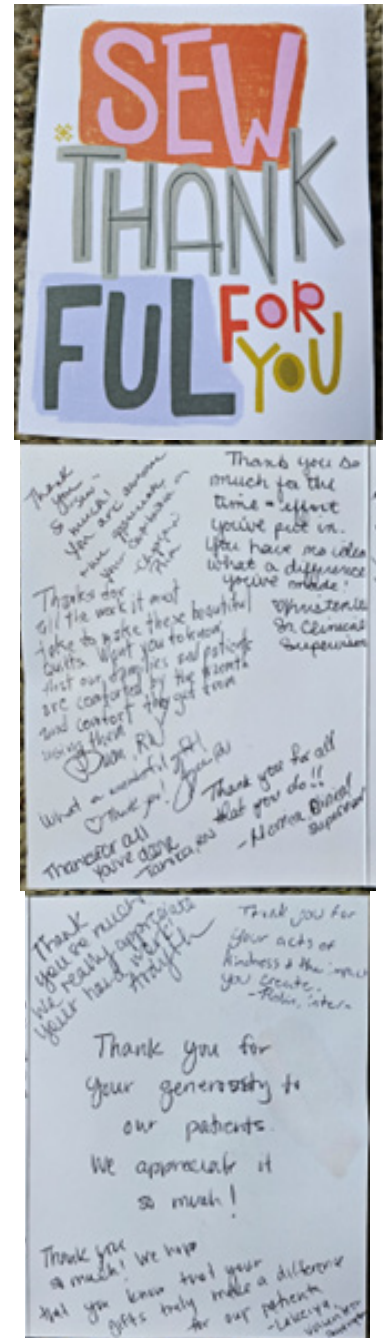 SEW
THANK
FUL FOR
YOU
Thank
you
so
much!
You are awesome
Thank you so
much for the
time + effort
you've put in.
You have no idea
what a difference
you've made!
Clinical
Supervisor
Thanks for
all the work it must
take to make these beautiful
quilts. Want you to know
that our families and patients
are comforted by the warmth
and comfort they get from
using them
RN
What a wonderful gift!
Thank you!
Thank you for all
that you do!!
Clinical
Supervisor
Thanks for all
you've done
-Tanika, RN
Thank
you so much
We really appreciate
your hard work!
Thank you for
your acts of
kindness & the impact
you create.
-Robin, intern
Thank you for
your generosity to
our patients.
We appreciate it
so much!
Thank you
so much! We hope
that you know that your
gifts truly make a difference
for our patients
-Lakeiya,
volunteer